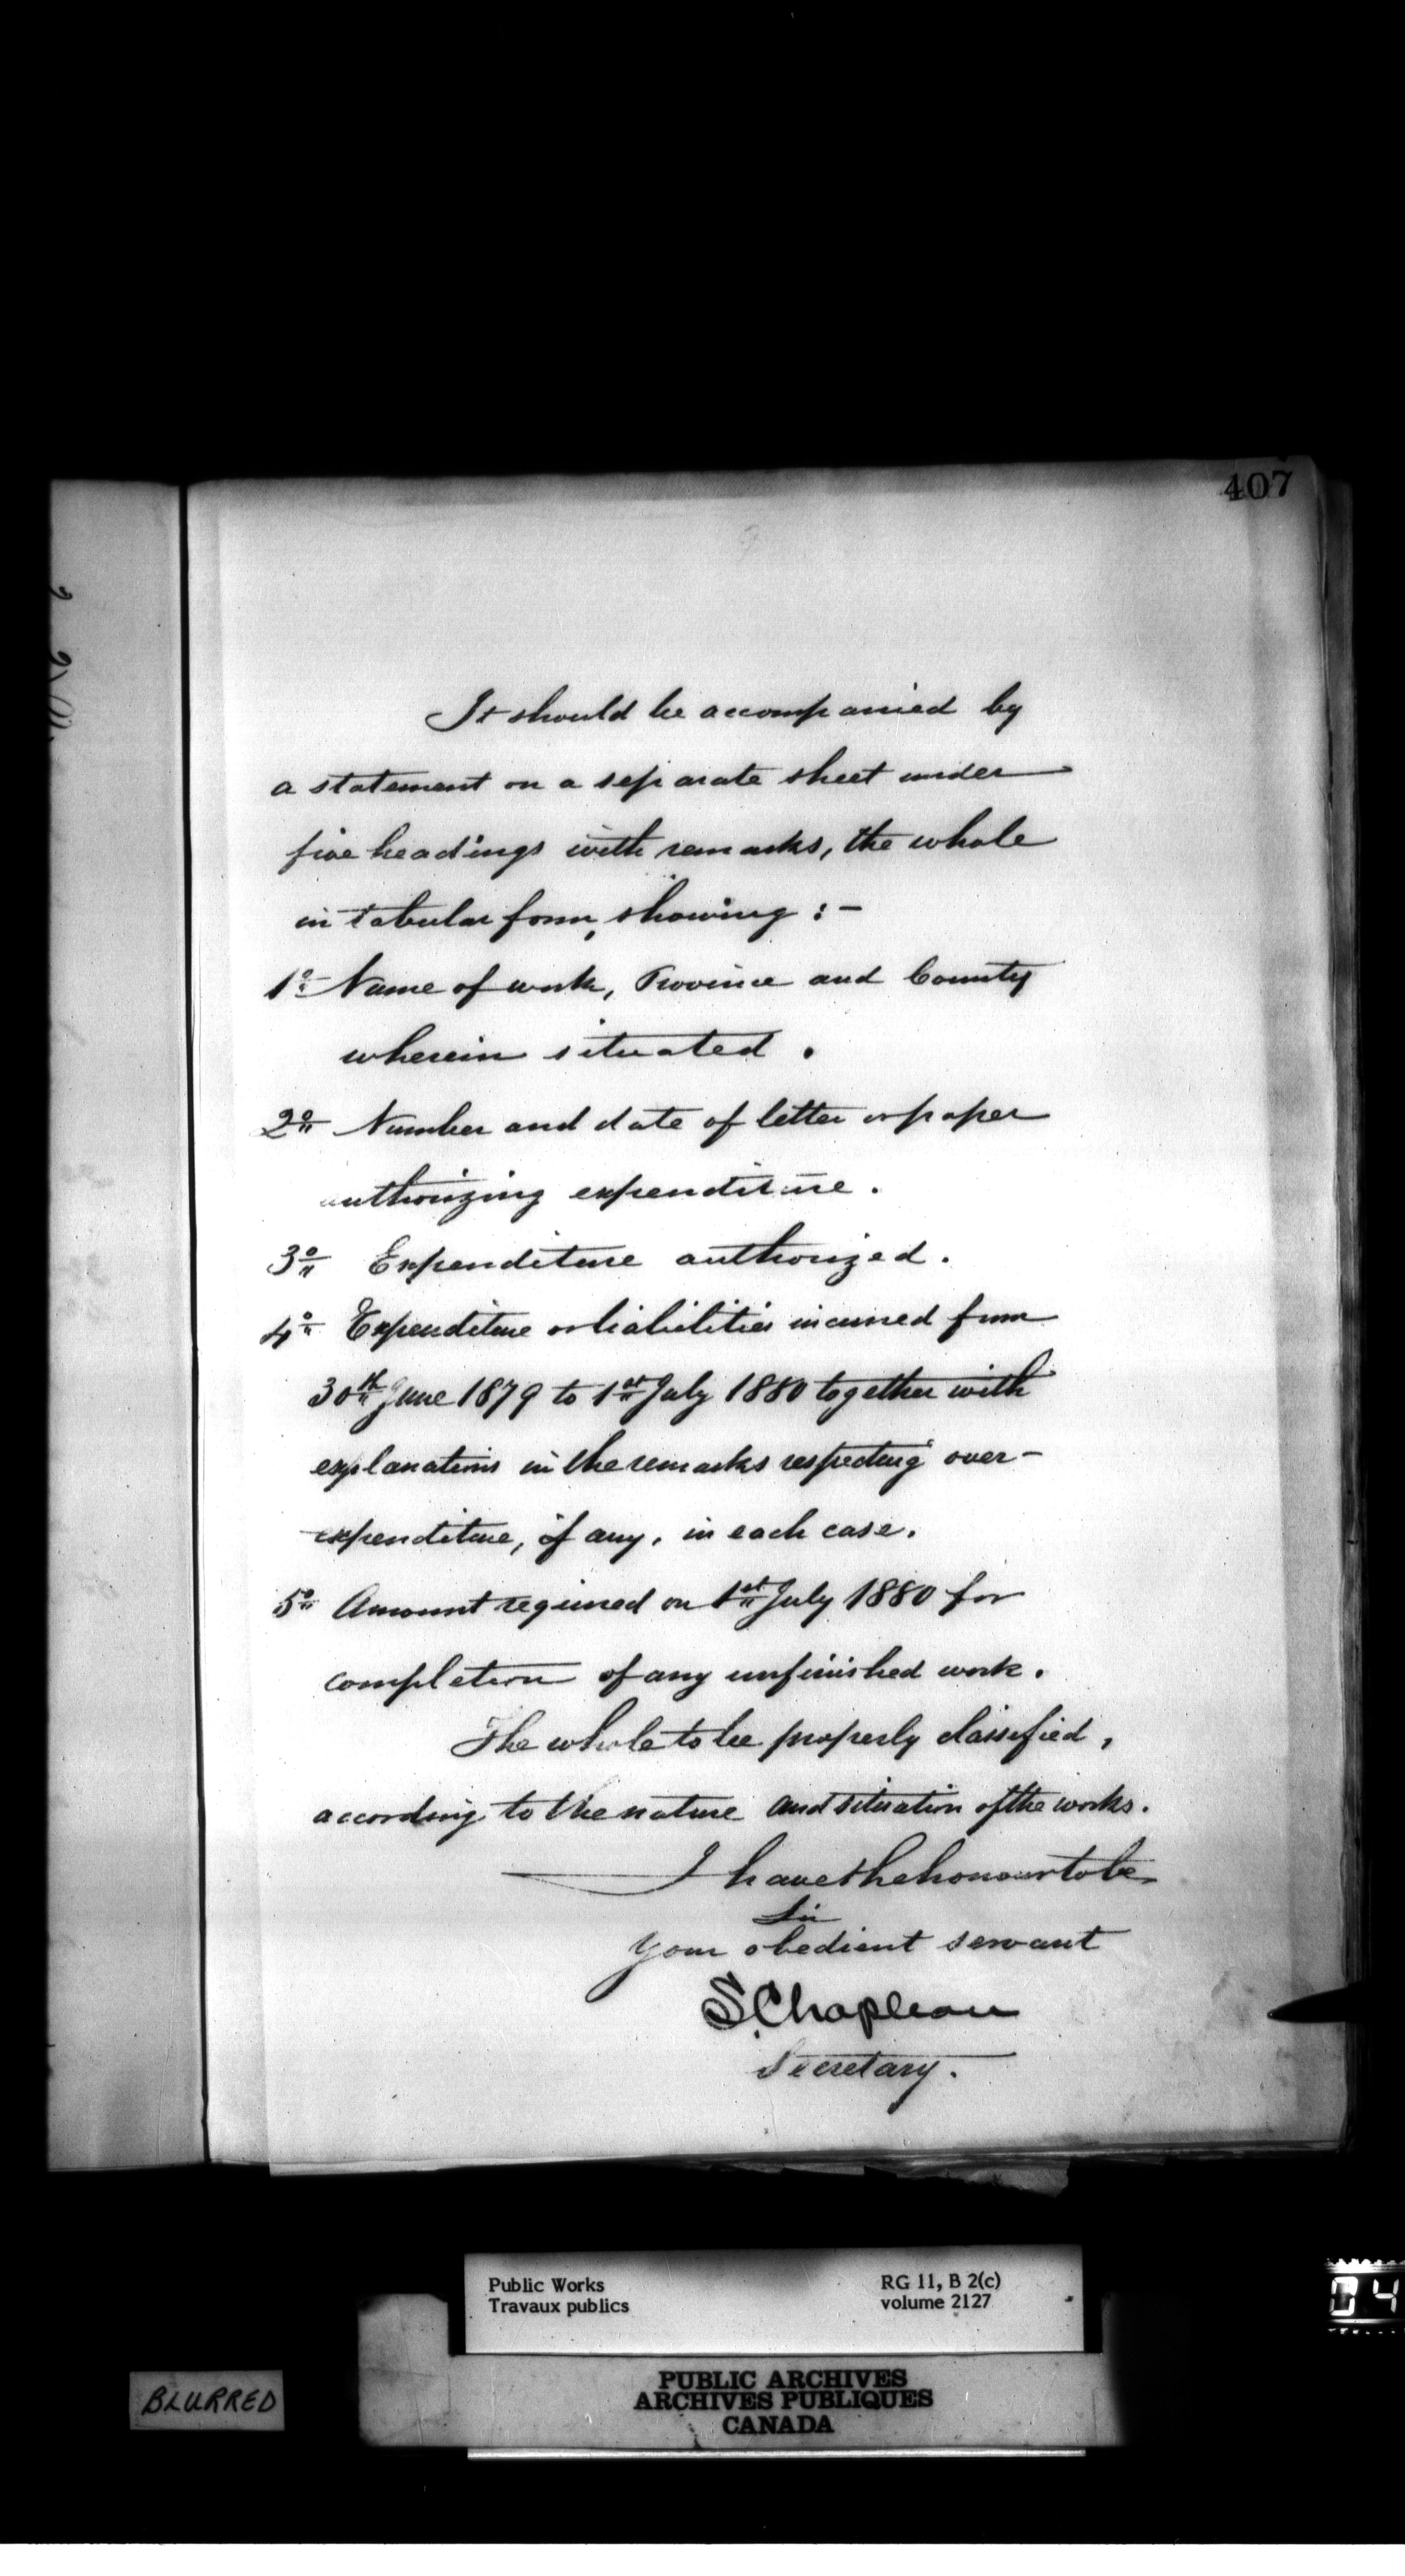 407
It should be accompanied by
a statement on a separate sheet under
five headings with remarks, the whole
in tabular form, showing :-
1º Name of work, Province and County
wherein situated.
2º Number and date of letter or paper
authorizing expenditure.
3º Expenditure authorized.
4º Expenditure or liabilities incurred from
30th June 1879 to 1st July 1880 together with
explanations in the remarks respecting over-
expenditure, if any, in each case.
5º Amount required on 1st July 1880 for
completion of any unfinished work.
The whole to be properly classified,
according to the nature and situation of the works.
I have the honour to be
Sir
Your obedient servant
S. Chapleau
Secretary.
Public Works
Travaux publics
RG 11, B 2(c)
volume 2127
PUBLIC ARCHIVES
ARCHIVES PUBLIQUES
CANADA
BLURRED
04